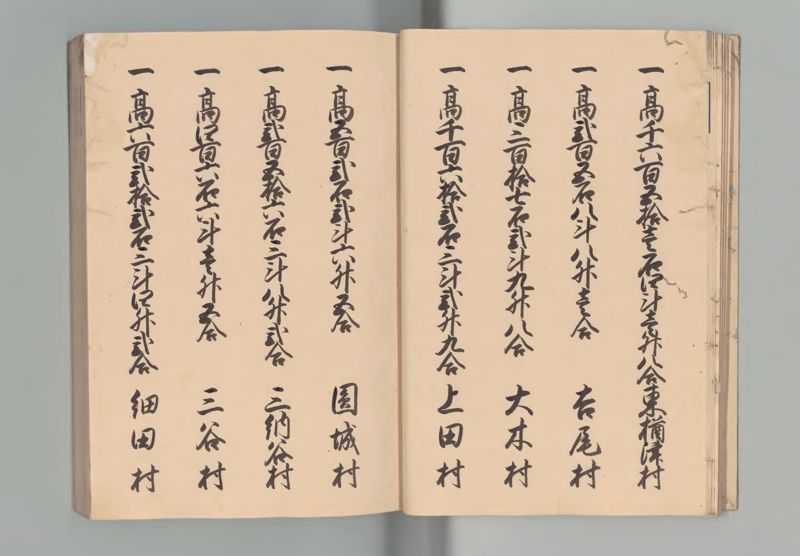 一高千六百五拾壱石四斗三升八合東楢津村
一高弐百五石八斗八升壱合吉尾村
一高三百拾七石弐斗九升八合大木村
一高千百六拾弐石三斗弐升九合上田村
一高五百弐石弐斗六升五合圓城村
一高弐百五拾六石三斗八升弐合三納谷村
一高四百六石六斗壱升五合三谷村
一高六百弐拾弐石三斗四升弐合細田村